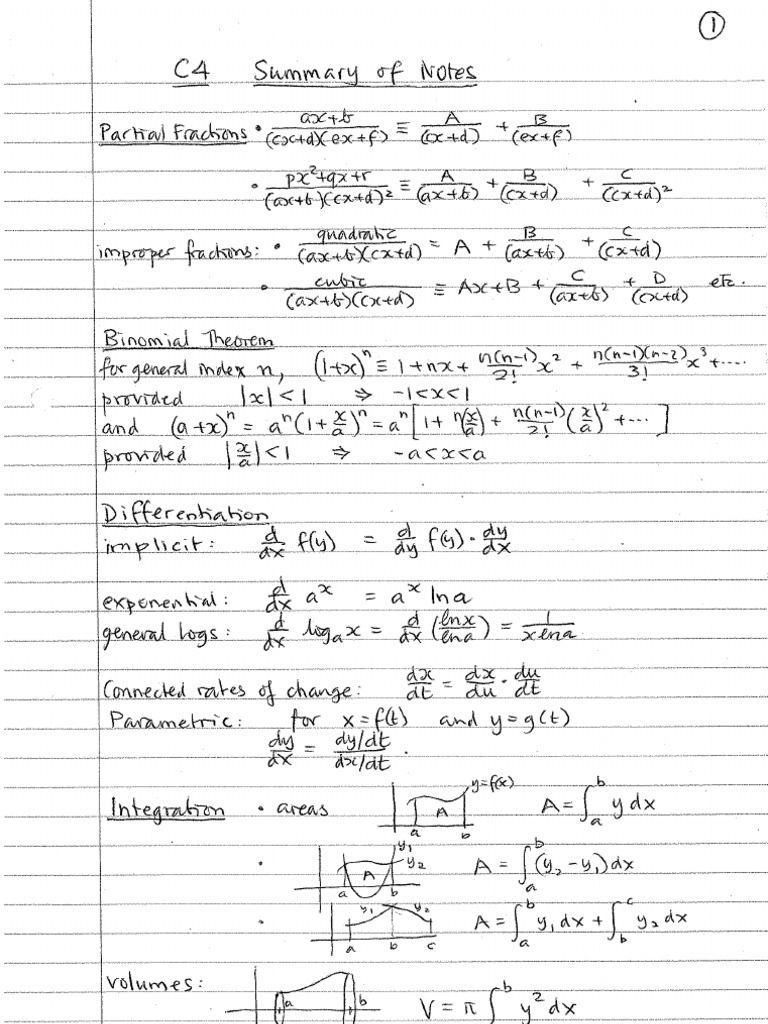 ①
C4 Summary of Notes
Partial Fractions • (ax+b)/((cx+d)(ex+f)) ≡ A/(cx+d) + B/(ex+f)
• (px²+qx+r)/((ax+b)(cx+d)²) ≡ A/(ax+b) + B/(cx+d) + C/(cx+d)²
improper fractions: • quadratic/((ax+b)(cx+d)) = A + B/(ax+b) + C/(cx+d)
• cubic/((ax+b)(cx+d)) ≡ Ax+B + C/(ax+b) + D/(cx+d) etc.
Binomial Theorem
for general index n, (1+x)ⁿ ≡ 1+nx+ n(n-1)/2! x² + n(n-1)(n-2)/3! x³+....
provided |x|<1 ⇒ -1<x<1
and (a+x)ⁿ = aⁿ(1+x/a)ⁿ = aⁿ[1 + n(x/a) + n(n-1)/2! (x/a)² + ...]
provided |x/a|<1 ⇒ -a<x<a
Differentiation
implicit: d/dx f(y) = d/dy f(y) · dy/dx
exponential: d/dx aˣ = aˣ ln a
general logs: d/dx logₐx = d/dx (ln x/ln a) = 1/(x ln a)
Connected rates of change: dx/dt = dx/du · du/dt
Parametric: for x=f(t) and y=g(t)
dy/dx = (dy/dt)/(dx/dt).
Integration • areas y=f(x) A a b A = ∫ₐᵇ y dx
• y₁ y₂ A a b A = ∫ₐᵇ (y₂-y₁)dx
• y₁ y₂ a b c A = ∫ₐᵇ y₁ dx + ∫_b^c y₂ dx
volumes: a b V = π ∫ᵇ y² dx